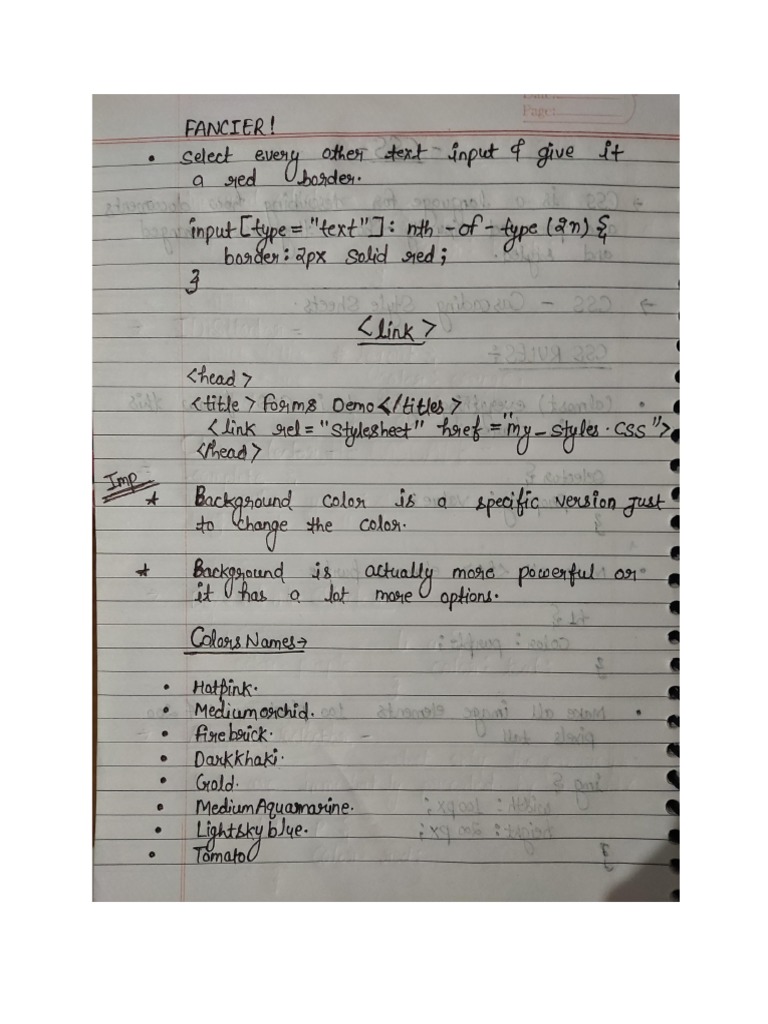 Page:
FANCIER!
• Select every other text input & give it
a red border.
input[type="text"]: nth-of-type(2n){
border: 2px solid red;
}
<link>
<head>
<title> Forms Demo</titles>
<link rel="Stylesheet" href="my_styles.css">
</head>
Imp
* Background color is a specific version just
to change the color.
* Background is actually more powerful or
it has a lot more options.
Colors Names→
• Hotpink.
• Mediumorchid.
• firebrick.
• Darkkhaki.
• Gold.
• MediumAquamarine.
• Lightskyblue.
• Tomato